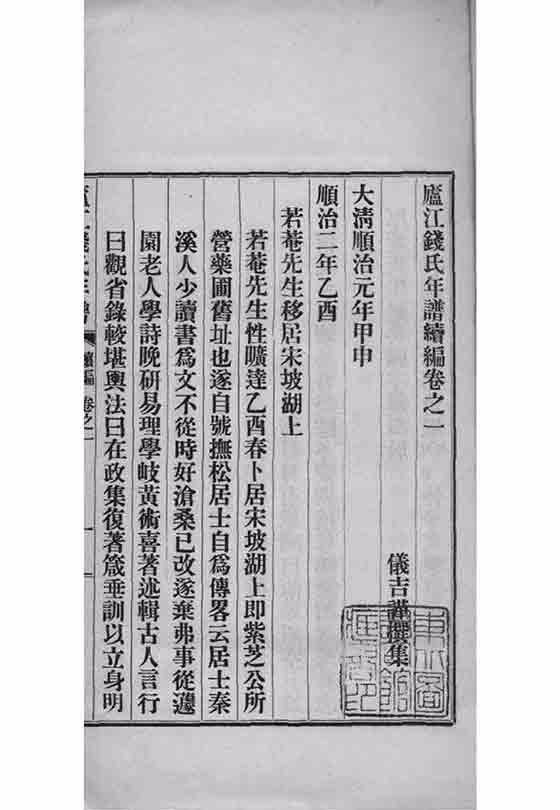 廬江錢氏年譜續編卷之一
儀吉謹撰集
大淸順治元年甲申
順治二年乙酉
若菴先生移居宋坡湖上
若菴先生性曠達乙酉春卜居宋坡湖上即紫芝公所
營藥圃舊址也遂自號撫松居士自爲傳畧云居士秦
溪人少讀書爲文不從時好滄桑已改遂棄弗事從邁
園老人學詩晚研易理學岐黃術喜著述輯古人言行
曰觀省錄較堪輿法曰在政集復著箴垂訓以立身明
廬江錢氏年譜 續編 卷之一 一